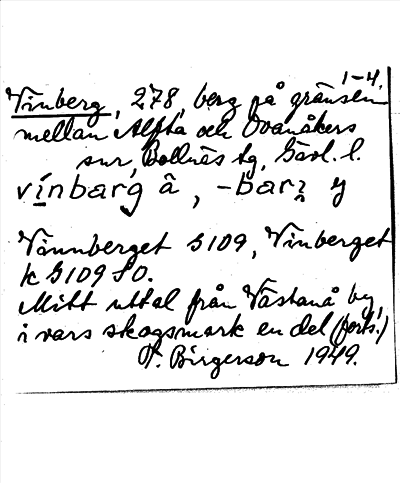 1-4.
Vinberg, 278, berg på gränsen
mellan Alfta och Ovanåkers
snr, Bollnäs tg, Gävl. l.
vínbarg â, -barʒ y
Vännberget G109, Vinberget
k G109 SO.
Mitt uttal från Västanå by,
i vars skogsmark en del (forts.)
F. Birgerson 1949.